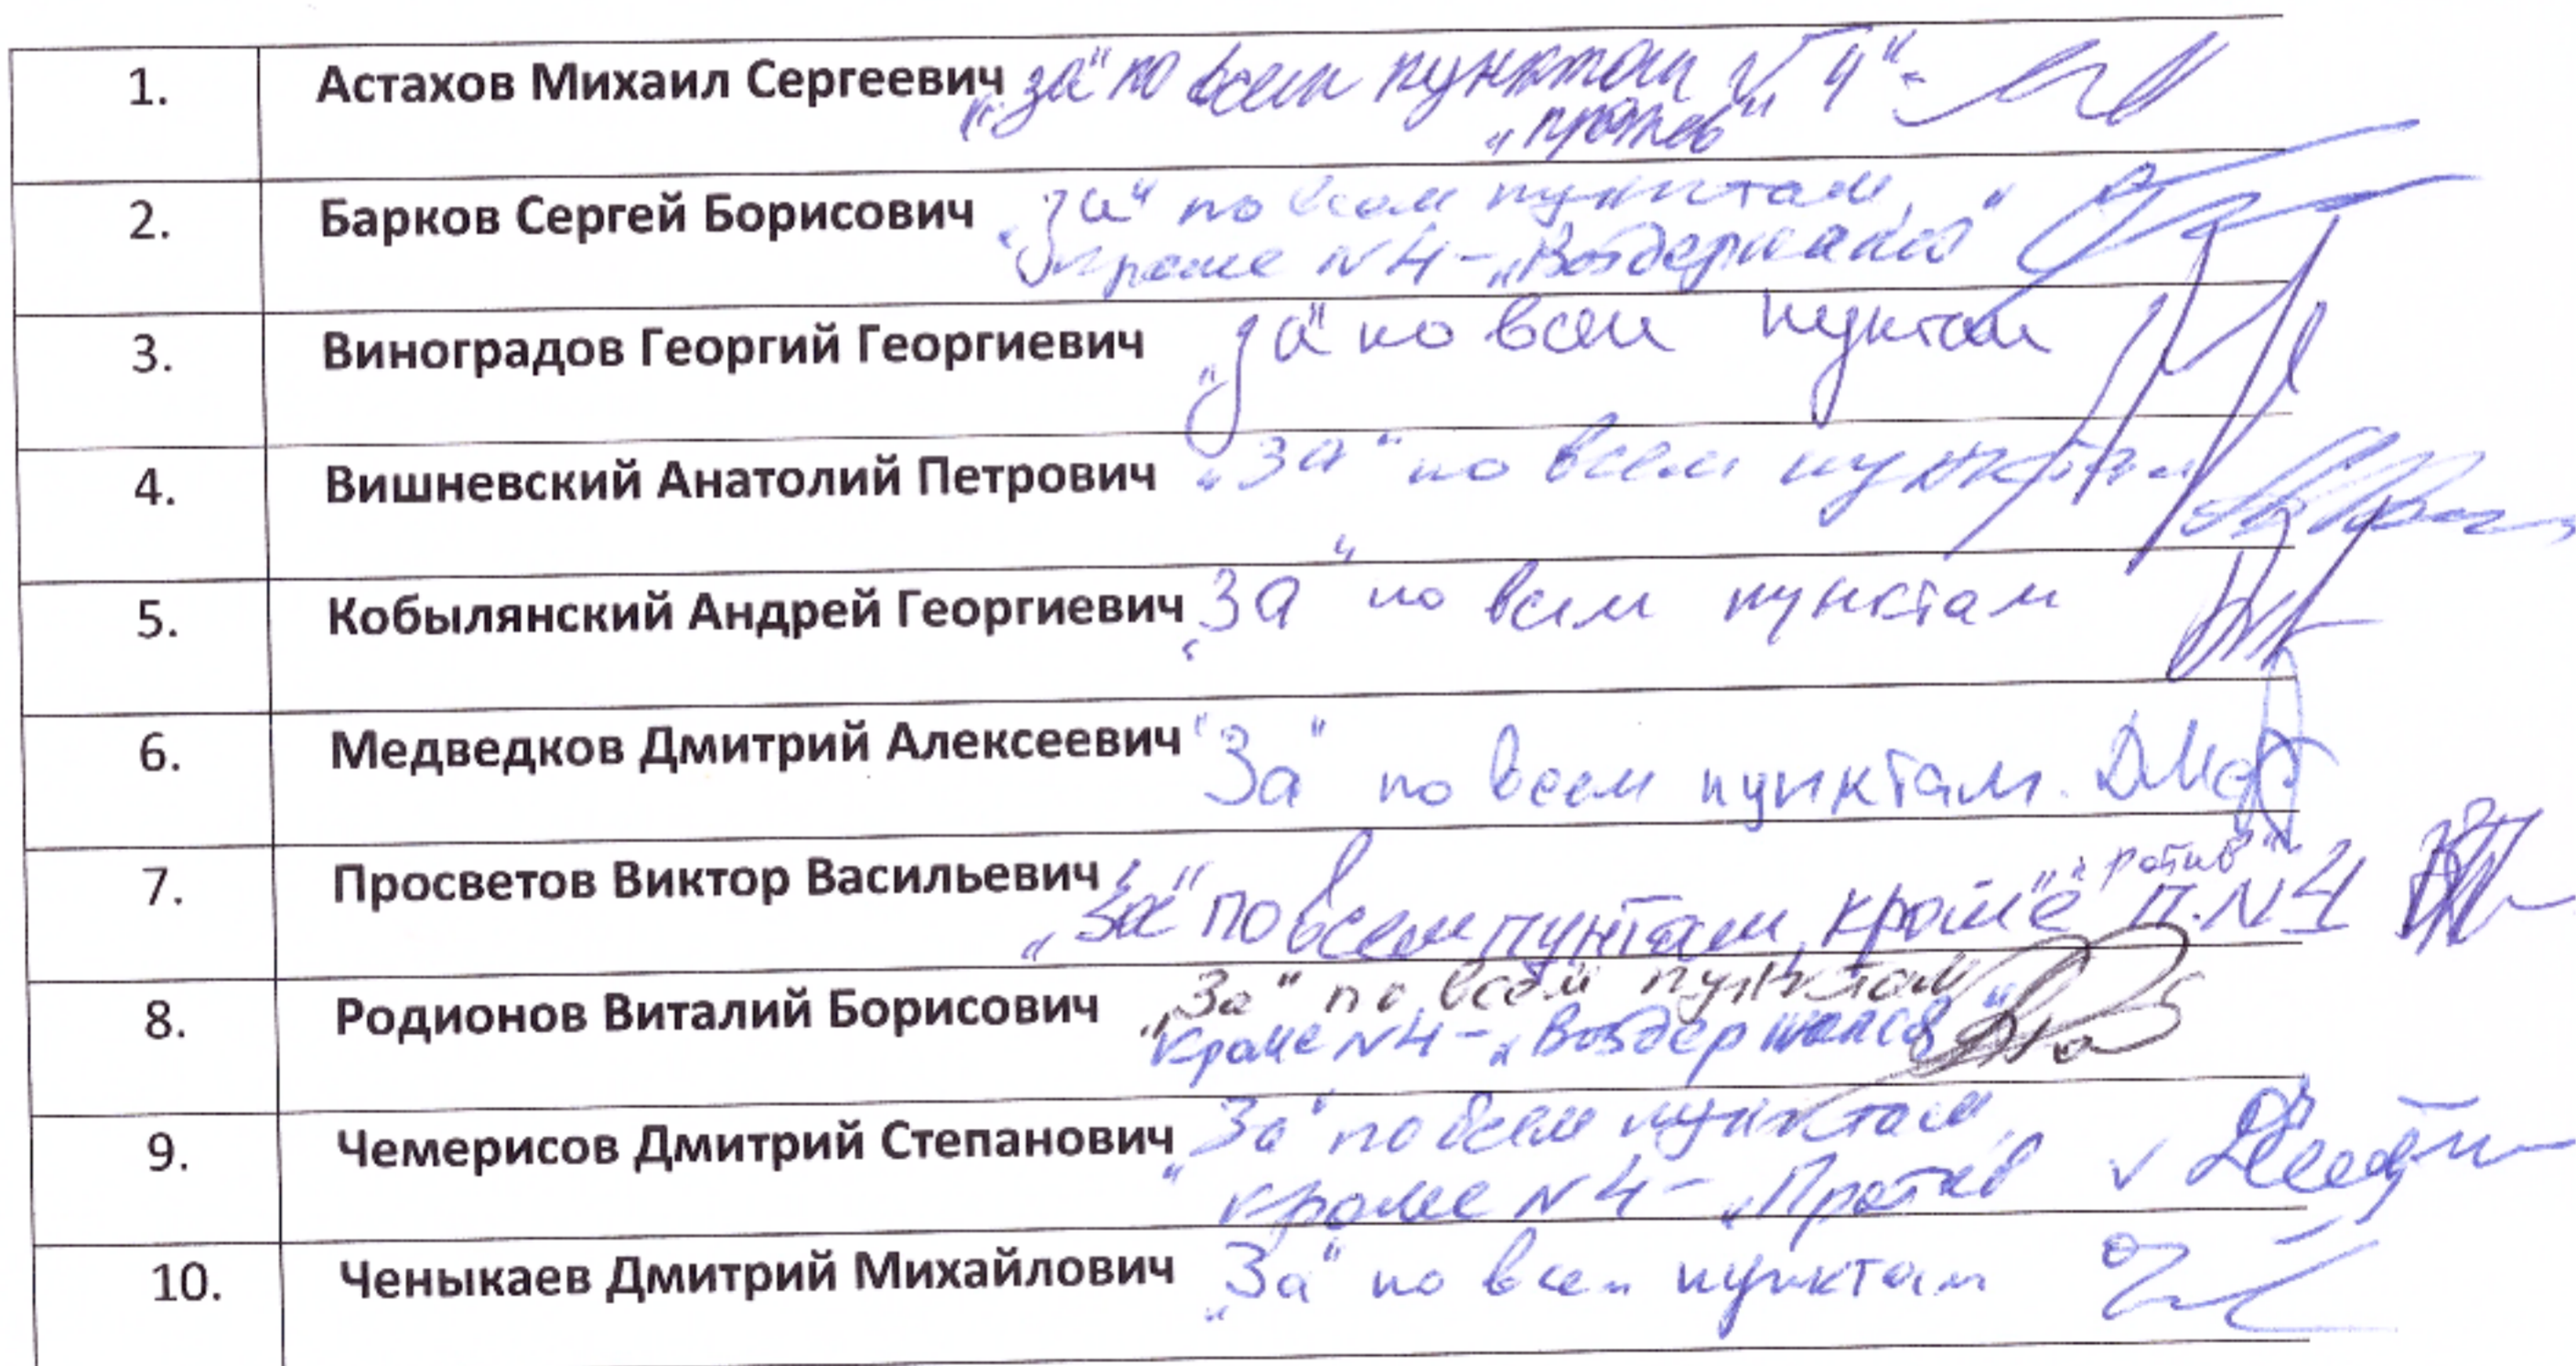 1. Астахов Михаил Сергеевич „за“ по всем пунктам √ 4“ -
„против“
2. Барков Сергей Борисович „За“ по всем пунктам,
кроме N4 – „Воздержался“
3. Виноградов Георгий Георгиевич „За“ по всем пуктам
4. Вишневский Анатолий Петрович „За“ по всем пунктам
5. Кобылянский Андрей Георгиевич „За“ по всем пунктам
6. Медведков Дмитрий Алексеевич "За" по всем пунктам.
7. Просветов Виктор Васильевич „За“ по всем пунтам, кроме "против" п. N4
8. Родионов Виталий Борисович „За“ по всем пунктам
кроме N4 – „Воздержался“
9. Чемерисов Дмитрий Степанович „За“ по всем пунктам,
кроме N4 – „Против
10. Ченыкаев Дмитрий Михайлович „За“ по всем пунктам